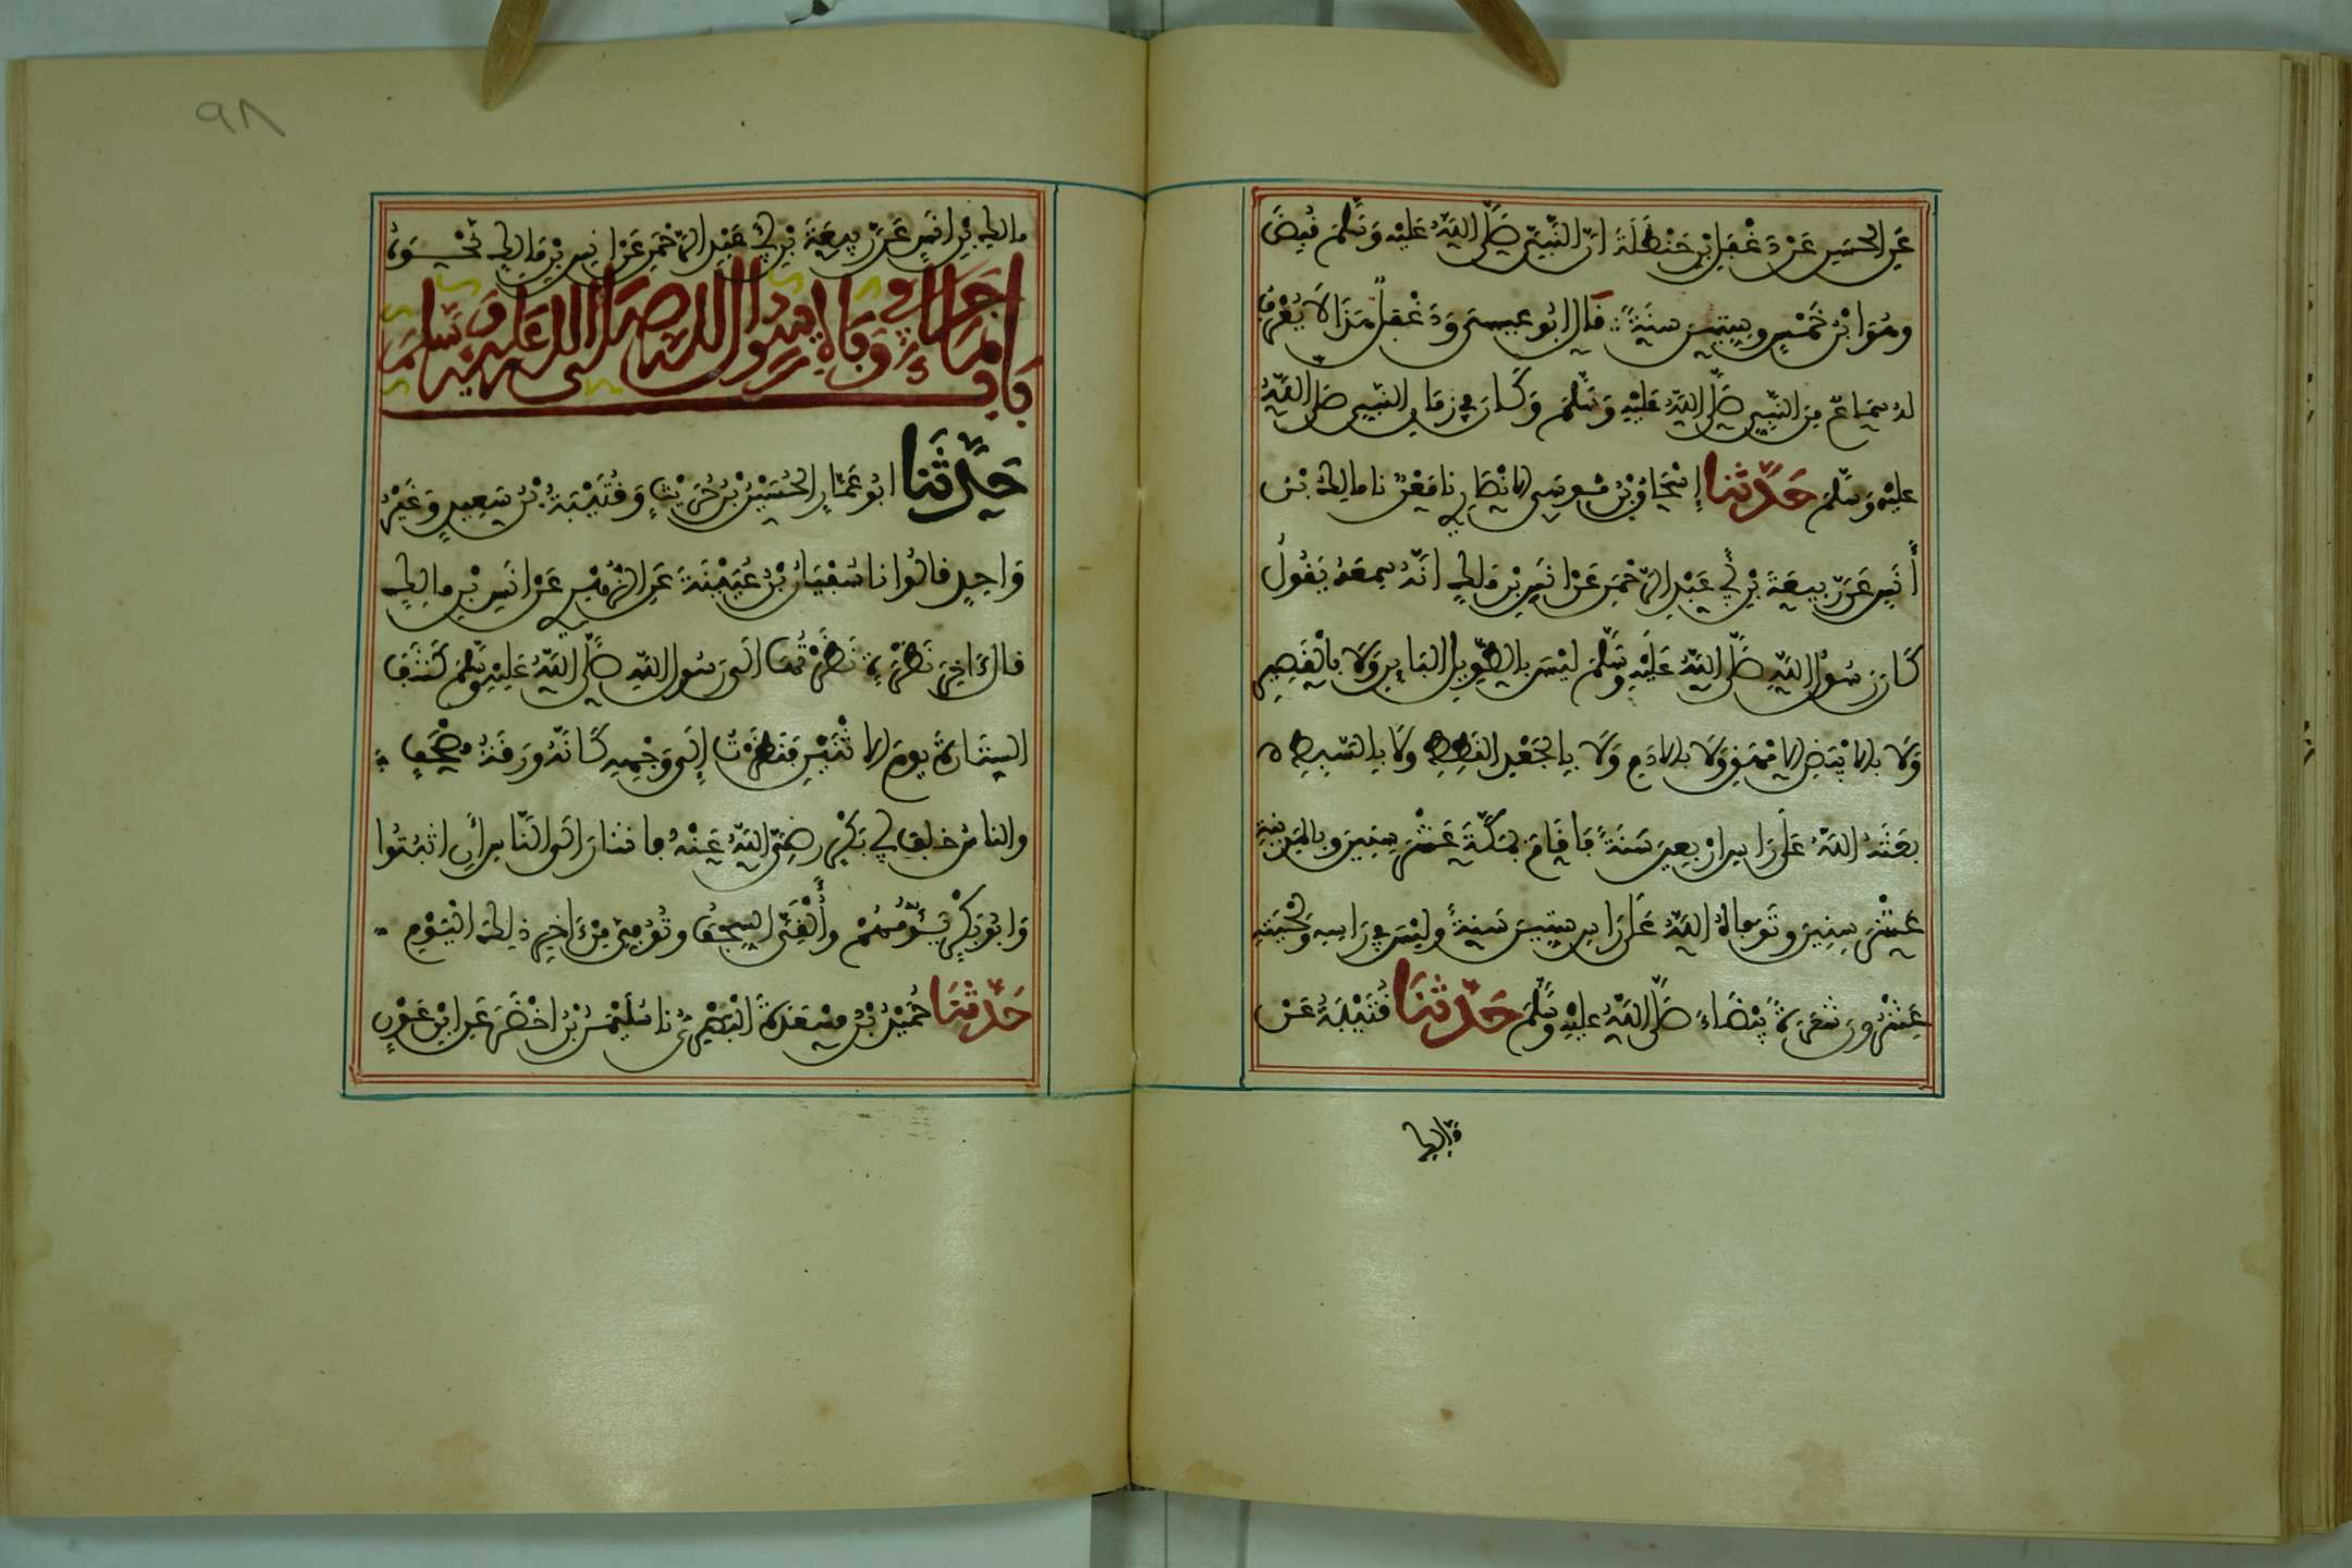 عَنِ الحَسَنِ عَنْ دَغْفَلِ بْنِ حَنْظَلَةَ انّ النَّبِيَّ صَلَّى اللَّهُ عَلَيْهِ وَسَلَّمَ قُبِضَ
وهُوَ ابْنُ خَمْسٍ وسِتِّينَ سنَةً قال ابُو عيسى وَدَغْفَلٌ هَذَا لاَ يُعْرَفُ
لهُ سَمَاعٌ مِنَ النَّبِيِّ صَلَّى اللَّهُ عَلَيْهِ وَسَلَّمَ وَكَانَ فِي زَمَانِ النَّبِيِّ صَلَّى اللَّهُ
عليْهِ وَسَلَّمَ حَدَّثَنا إِسْحَاقُ بْنُ مُوسَى الانْصَارِي نا مَعْنٌ نا مالِكُ بْنُ
أَنَسٍ عَنْ رَبِيعَةَ بْنِ أَبِي عَبْدِ الرَّحْمَنِ عَنْ انَسِ بْنِ مَالِكٍ انَّهُ سَمِعَهُ يَقُولُ
كَانَ رَسُولُ اللَّهِ صَلَّى اللَّهُ عَلَيْهِ وَسَلَّمَ لَيْسَ بِالطَّوِيلِ البَائِنِ وَلَا بالْقَصِيرِ
وَلَا بالابْيَضِ الامْهَقِ وَلَا بالادَمِ وَلَا بِالجَعْدِ القَطِطِ ولَا بالسَّبِطِ ه
بعَثَهُ اللَّهُ عَلَى رَاسِ ارْبعِينَ سَنَةً فَاقَامَ بمَكَّةَ عَشْرَ سِنِينَ وبالمَدِينَةِ
عَشْرَ سِنِينَ وتَوَفاهُ اللَّهُ عَلَى رَاسِ ستِينَ سَنَةً وليْسَ فِي رَاسِهِ ولحْيَتِهِ
عِشْرُونَ شَعْرَةً بَيْضَاءَ صَلَّى اللَّهُ عليْهِ وَسَلَّمَ حَدَّثَنَا قُتَيْبَةُ عَنْ
مالك بْنِ انَسٍ عَنْ رَبِيعَةَ بْنِ أَبِي عَبْدِ الرَّحْمَنِ عَنْ انَسِ بْنِ مَالِكٍ نَحْوَهُ
بَابُ مَا جَاءَ فِي وَفَاةِ رَسُولِ اللهِ صَلَّى اللهُ عَلَيْهِ وَسَلَّمَ
حَدَّثَنا ابُو عَمَّارٍ الحُسَيْنُ بْنُ حُرَيْثٍ وَقُتَيْبَةُ بْنُ سَعِيدٍ وَغَيْرُ
وَاحِدٍ قالُوا نا سُفْيَانُ بْنُ عُيَيْنَةَ عَنِ الزُّهْرِيِّ عَنْ انَسِ بْنِ مالِكٍ
قالَ ءَاخِرُ نَظْرَةٍ نَظَرْتُهَا الَى رَسُولِ اللَّهِ صَلَّى اللَّهُ عَلَيْهِ وَسَلَّمَ كَشْفُ
السِّتَارَةِ يومَ الاثْنَيْنِ فَنَظَرْتُ إلَى وَجْهِهِ كَانَّهُ وَرَقَةُ مُصْحَفٍ
والناسُ خلفَ أَبِي بَكْرٍ رضِيَ اللَّهُ عَنْهُ فاشَارَ الَى النَّاسِ أَنِ اثبُتُوا
وَابُو بَكْرٍ يَؤُمُّهُمْ وأَلْقَى السِّجفَ وتُوُفِّيَ مِنْ ءَاخِرِ ذلِكَ الْيَوْمِ
حَدَّثَنَا حُمَيْدُ بْنُ مَسْعَدَةَ الْبَصْرِيُّ نا سُلَيْمُ بْنُ اخْضَرَ عَنِ ابْنِ عَوْنٍ
٩٨